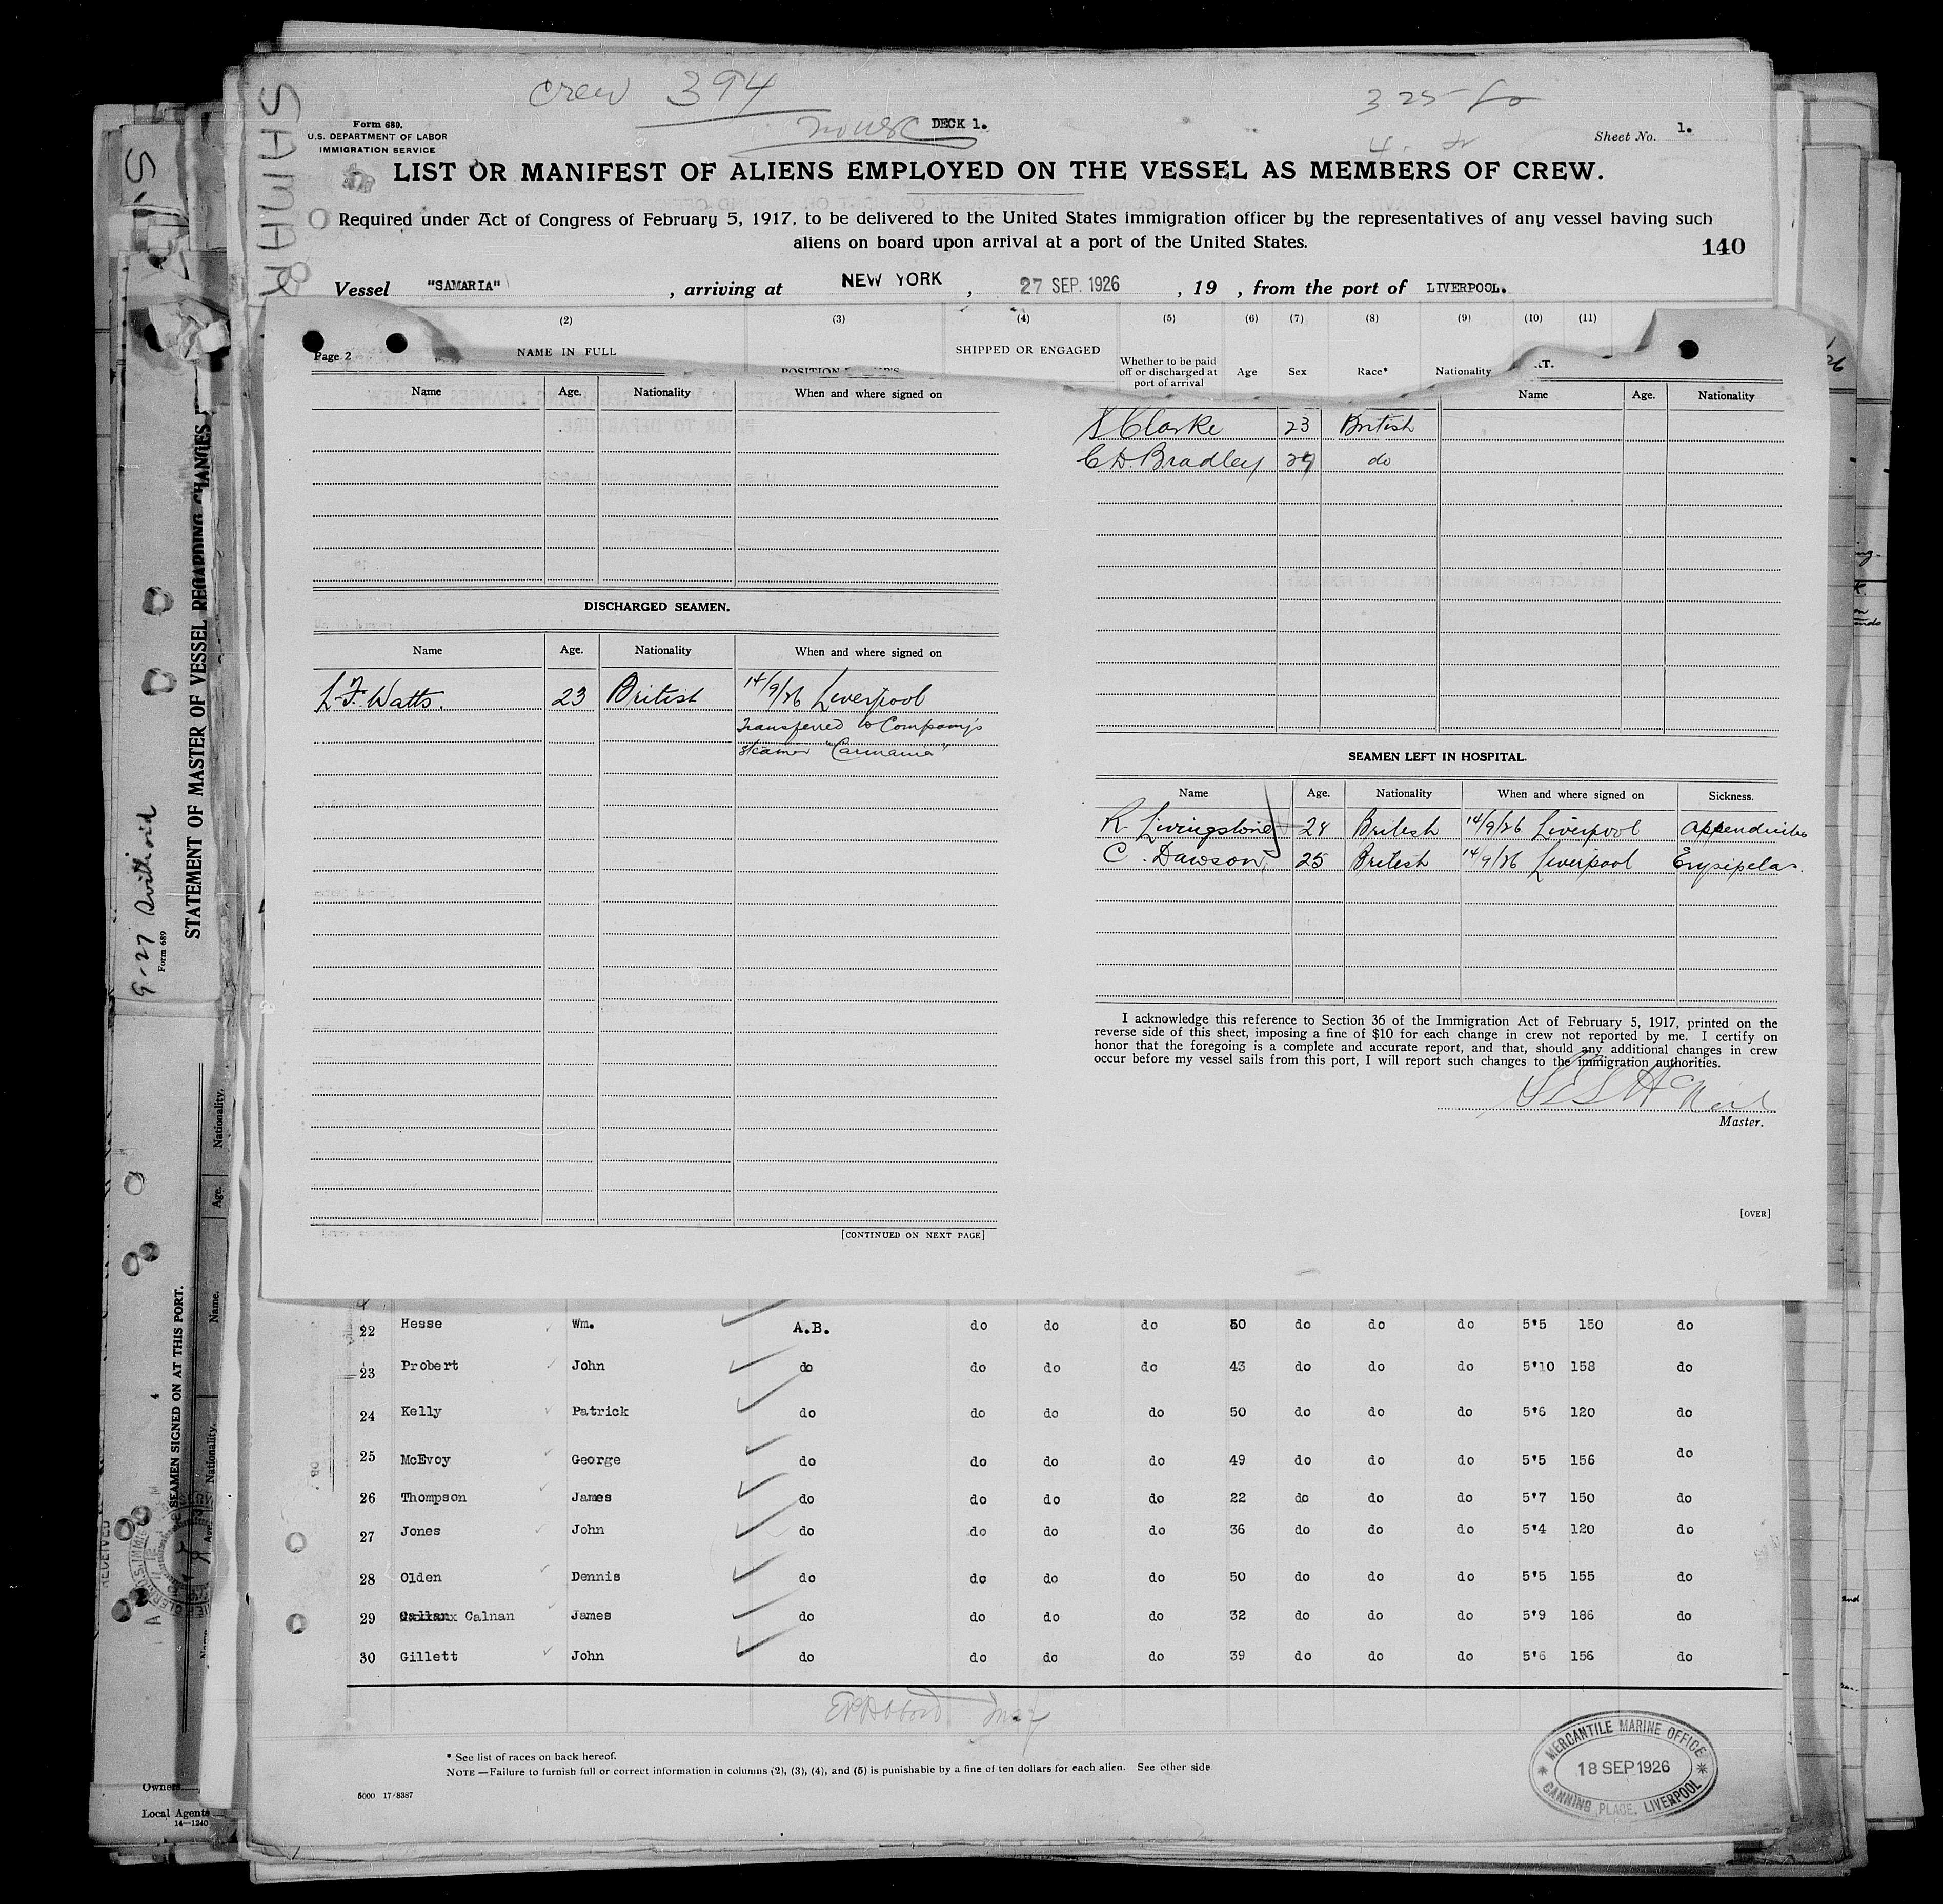 crew 394
3 25
Form 689.
U.S. DEPARTMENT OF LABOR
IMMIGRATION SERVICE
DECK 1.
Sheet No. 1.
SAMARIA
LIST OR MANIFEST OF ALIENS EMPLOYED ON THE VESSEL AS MEMBERS OF CREW.
Required under Act of Congress of February 5, 1917, to be delivered to the United States immigration officer by the representatives of any vessel having such
aliens on board upon arrival at a port of the United States.
140
Vessel "SAMARIA", arriving at NEW YORK, 27 SEP. 1926, 19 , from the port of LIVERPOOL.
(2) (3) (4) (5) (6) (7) (8) (9) (10) (11)
Page 2 NAME IN FULL SHIPPED OR ENGAGED Whether to be paid off or discharged at port of arrival Age Sex Race* Nationality
Name Age. Nationality When and where signed on
DISCHARGED SEAMEN.
Name Age. Nationality When and where signed on
L. F. Watts. 23 British 14/9/26 Liverpool
Transferred to Company's
steamer "Carmania"
[CONTINUED ON NEXT PAGE]
Name Age. Nationality
Clarke 23 British
C D. Bradley 24 do
SEAMEN LEFT IN HOSPITAL.
Name Age. Nationality When and where signed on Sickness.
R Livingstone 28 British 14/9/26 Liverpool Appendicitis
C. Dawson 25 British 14/9/26 Liverpool Erysipelas.
I acknowledge this reference to Section 36 of the Immigration Act of February 5, 1917, printed on the
reverse side of this sheet, imposing a fine of $10 for each change in crew not reported by me. I certify on
honor that the foregoing is a complete and accurate report, and that, should any additional changes in crew
occur before my vessel sails from this port, I will report such changes to the immigration authorities.
Master.
[OVER]
22 Hesse Wm. A.B. do do do 50 do do do 5'5 150 do
23 Probert John do do do do 43 do do do 5'10 158 do
24 Kelly Patrick do do do do 50 do do do 5'6 120 do
25 McEvoy George do do do do 49 do do do 5'5 156 do
26 Thompson James do do do do 22 do do do 5'7 150 do
27 Jones John do do do do 36 do do do 5'4 120 do
28 Olden Dennis do do do do 50 do do do 5'5 155 do
29 Calnan James do do do do 32 do do do 5'9 186 do
30 Gillett John do do do do 39 do do do 5'6 156 do
* See list of races on back hereof.
NOTE—Failure to furnish full or correct information in columns (2), (3), (4), and (5) is punishable by a fine of ten dollars for each alien. See other side
5000 17-8387
MERCANTILE MARINE OFFICE
18 SEP 1926
CANNING PLACE, LIVERPOOL
STATEMENT OF MASTER OF VESSEL REGARDING CHANGES
Form 689
9-27
SEAMEN SIGNED ON AT THIS PORT.
Name. Age. Nationality.
RECEIVED
Owners
Local Agents
14—1240